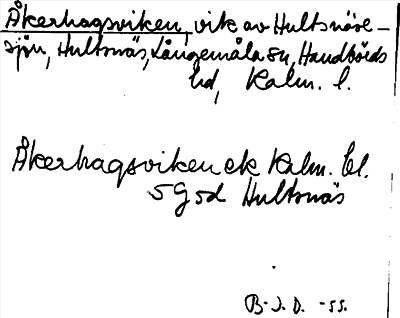 Åkerhagsviken, vik av Hultsnäse-
sjön, Hultsnäs, Långemåla sn, Handbörds
hd, Kalm. l.
Åkerhagsviken ek Kalm. bl.
5G5d Hultsnäs
B.J.D. -55.